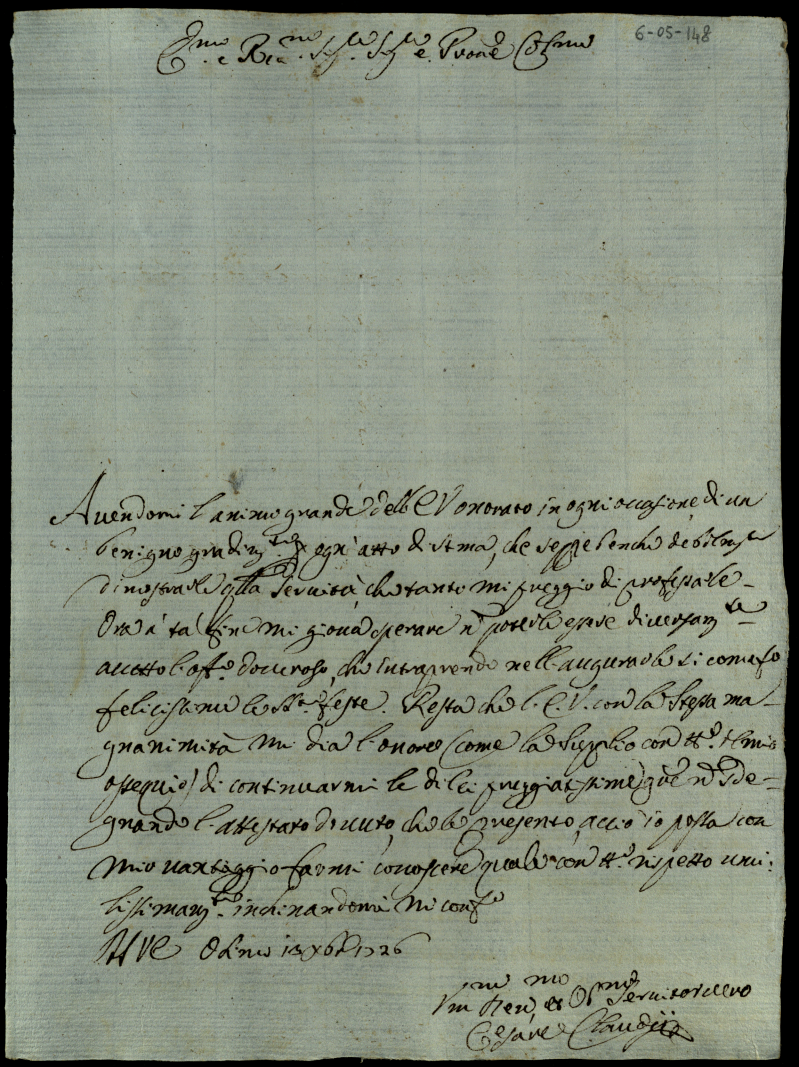 6-05-148
Em.mo e Re.mo Sig.re Sig.re e Prone Col.mo
Avendomi l'animo grande dell'E V onorato in ogni occasione di un
benigno gradim.to ogn'atto di stima, che seppe benche debolm.te
dimostrarle alla servitù, che tanto mi preggio di professarle.
Ora à tal fine mi giova sperare n potere essere diversam.te
accetto l'off.o doveroso, che intraprendo nell'augurarle si come fo
felicissime le SS.te feste. Resta che l'E.V. con la stessa ma-
gnanimità mi dia l'onore (come la supplico con tt.o il mio
ossequio) di continuarmi le di lei preggiatissime grã n sde-
gnando l'attestato dovuto, che le presento, acciò io possa con
mio vantaggio farmi conoscere quale con tt.o rispetto umi:
lissimam.te inchinandomi mi conf.o
Di VE Osimo 13 Xbre 1726
Um.mo Dev.mo et Ob.mo Servitor vero
Cesare Claudij